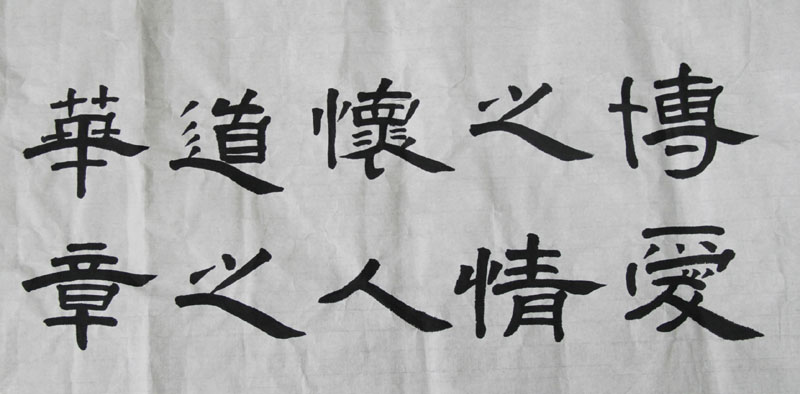 博愛
之情
懷人
道之
華章